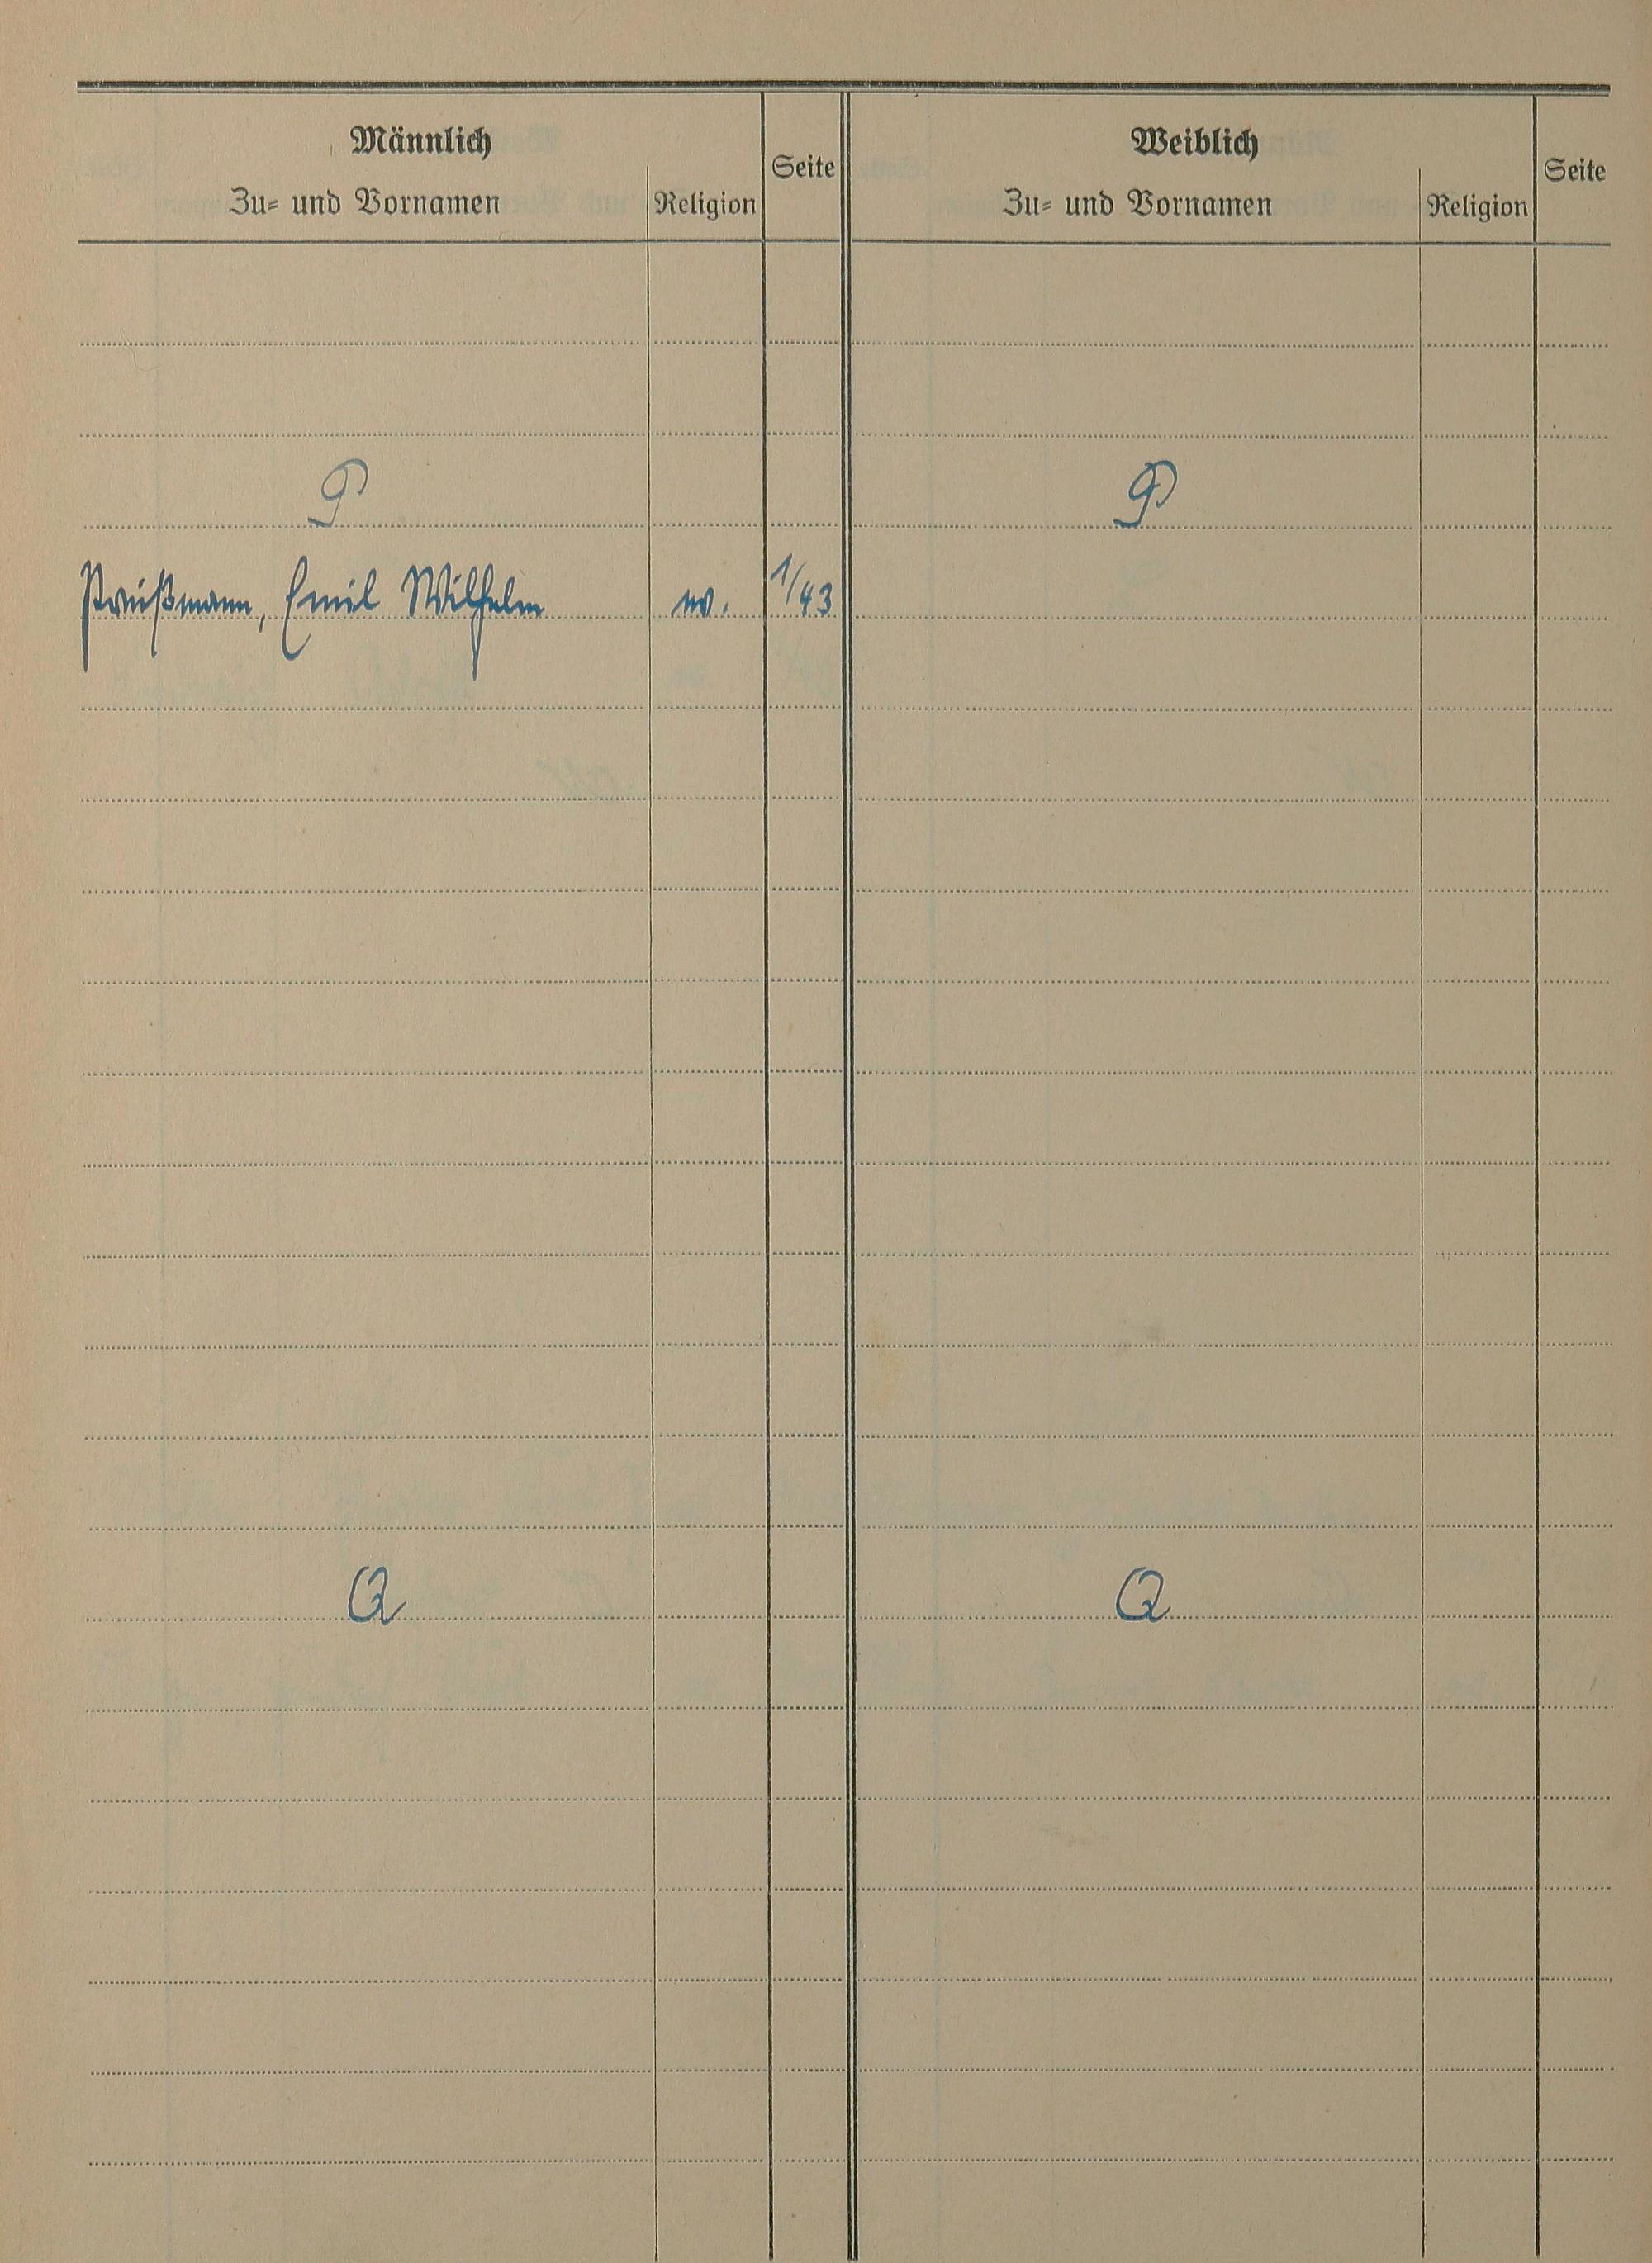 Männlich Seite Weiblich Seite
Zu= und Vornamen Religion Zu= und Vornamen Religion
P P
Preißmann, Emil Wilhelm ev. 1/43
Q Q